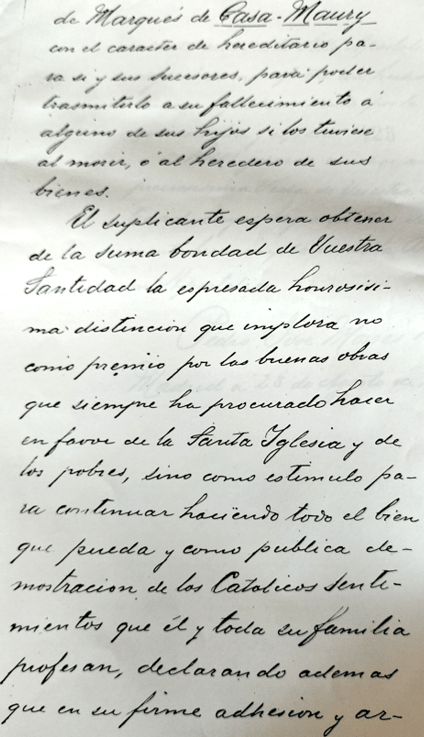 de Marqués de Casa-Maury
con el caracter de hereditario pa-
ra si y sus sucesores, para poder
trasmitirlo a su fallecimiento á
alguno de sus hijos si los tuviese
al morir, ó al heredero de sus
bienes.
El suplicante espera obtener
de la suma bondad de Vuestra
Santidad la espresada honrosisi-
ma distincion que implora no
como premio por las buenas obras
que siempre ha procurado hacer
en favor de la Santa Iglesia y de
los pobres, sino como estimulo pa-
ra continuar haciendo todo el bien
que pueda y como publica de-
mostracion de los Catolicos senti-
mientos que él y toda su familia
profesan, declarando ademas
que en su firme adhesion y ar-